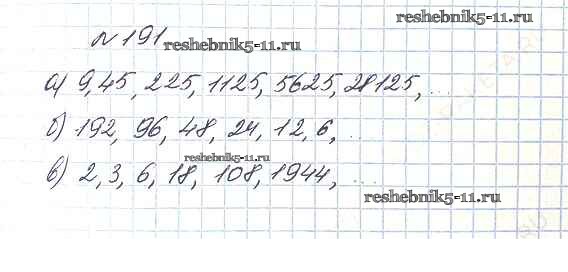 reshebnik5-11.ru
№191 reshebnik5-11.ru
а) 9, 45, 225, 1125, 5625, 28125, ...
б) 192, 96, 48, 24, 12, 6, ...
reshebnik5-11.ru
в) 2, 3, 6, 18, 108, 1944, ...
reshebnik5-11.ru